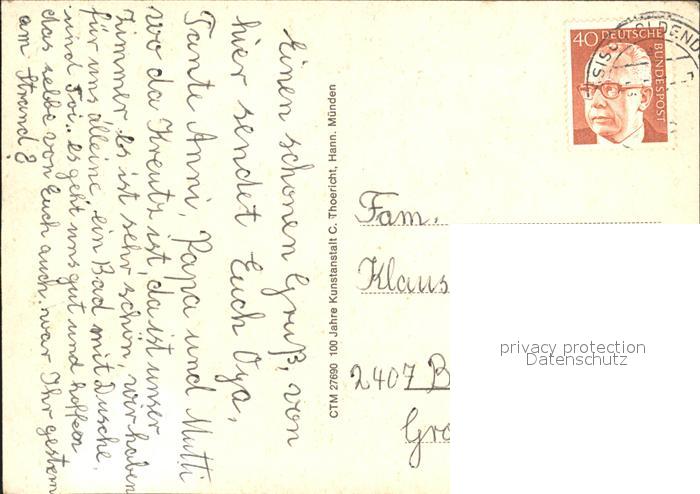 Einen schönen Gruß, von
hier sendet Euch Oya,
Tante Anni, Papa und Mutti
wo da Kreutz ist, da ist unser
Zimmer. Es ist sehr schön, wir haben
für uns alleine, ein Bad mit Dusche,
und es geht uns gut und hoffen
das selbe von Euch auch. war Ihr gestern
am Strand?
CTM 27690 100 Jahre Kunstanstalt C. Thoericht, Hann. Münden
40 DEUTSCHE
BUNDESPOST
Fam.
Klaus
2407 B
Gro
privacy protection
Datenschutz